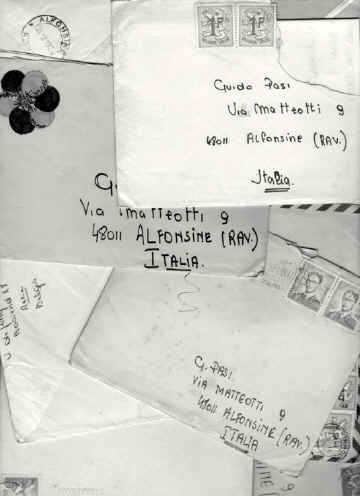 ALFONSINE
1F 1F
Guido Pasi
Via Matteotti 9
48011 Alfonsine (RAV.)
Italia
G
Via Matteotti 9
48011 ALFONSINE (RAV.)
ITALIA.
G. PASI
VIA MATTEOTTI 9
48011 ALFONSINE (RAV.)
ITALIA